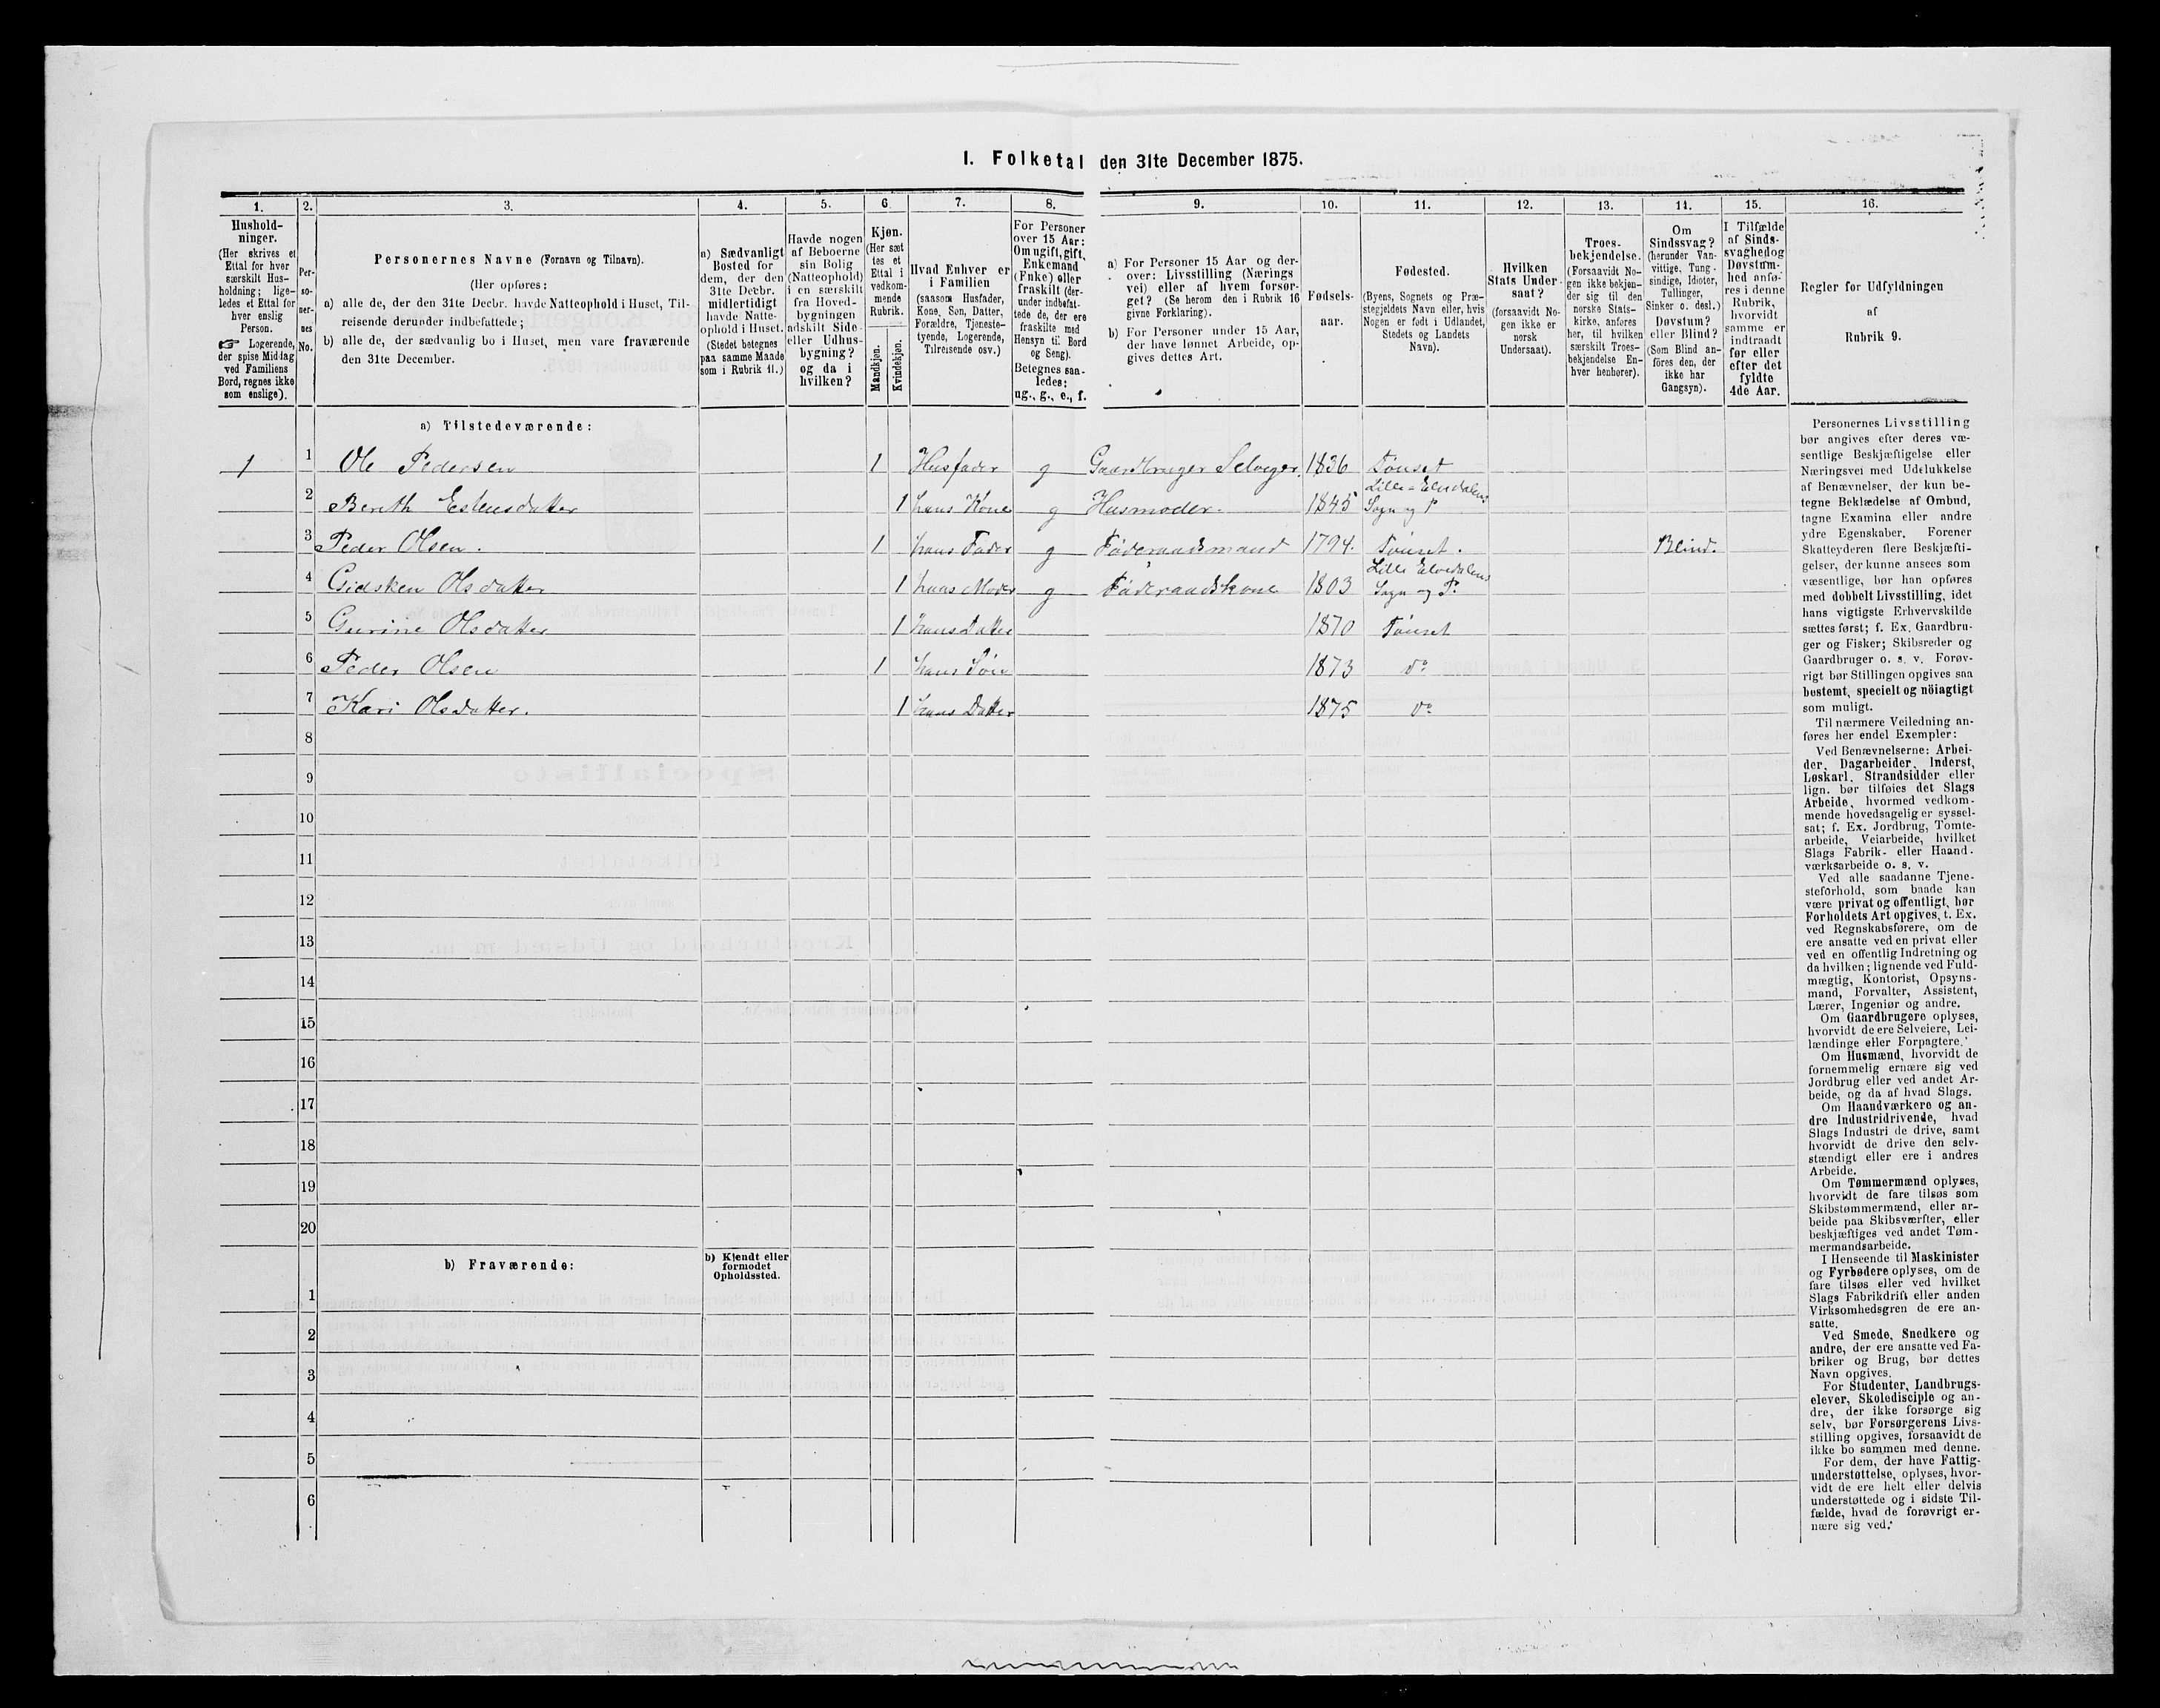 I. Folketal den 31te December 1875.
1. 2. 3. 4. 5. 6. 7. 8. 9. 10. 11. 12. 13. 14. 15. 16.
Hushold-
ninger.
(Her skrives et
Ettal for hver
særskilt Hus-
holdning; lige-
ledes et Ettal for
hver enslig
Person.
☞ Logerende,
der spise Middag
ved Familiens
Bord, regnes ikke
som enslige).
Per-
so-
ner-
nes
No.
Personernes Navne (Fornavn og Tilnavn).
(Her opføres:
a) alle de, der den 31te Decbr. havde Natteophold i Huset, Til-
reisende derunder indbefattede;
b) alle de, der sædvanlig bo i Huset, men vare fraværende
den 31te December.
a) Sædvanligt
Bosted for
dem, der den
31te Decbr.
midlertidigt
havde Natte-
ophold i Huset.
(Stedet betegnes
paa samme Maade
som i Rubrik 11.)
Havde nogen
af Beboerne
sin Bolig
(Natteophold)
i en særskilt
fra Hoved-
bygningen
adskilt Side-
eller Udhus-
bygning?
og da i
hvilken?
Kjøn.
(Her sæt
tes et
Ettal i
vedkom-
mende
Rubrik.
Mandkjøn.
Kvindekjøn.
Hvad Enhver er
i Familien
(saasom Husfader,
Kone, Søn, Datter,
Forældre, Tjeneste-
tyende, Logerende,
Tilreisende osv.)
For Personer
over 15 Aar:
Om ugift, gift,
Enkemand
(Enke) eller
fraskilt (der-
under indbefat-
tede de, der ere
fraskilte med
Hensyn til Bord
og Seng).
Betegnes saa-
ledes:
ug., g., e., f.
a) For Personer 15 Aar og der-
over: Livsstilling (Nærings
vei) eller af hvem forsør-
get? (Se herom den i Rubrik 16
givne Forklaring).
b) For Personer under 15 Aar,
der have lønnet Arbeide, op-
gives dettes Art.
Fødsels-
aar.
Fødested.
(Byens, Sognets og Præ-
stegjeldets Navn eller, hvis
Nogen er født i Udlandet,
Stedets og Landets
Navn).
Hvilken
Stats Under-
saat?
(forsaavidt No-
gen ikke er
norsk
Undersaat).
Troes-
bekjendelse.
(Forsaavidt No-
gen ikke bekjen-
der sig til den
norske Stats-
kirke, anføres
her, til hvilken
særskilt Troes-
bekjendelse En-
hver henhører).
Om
Sindssvag?
(herunder Van-
vittige, Tung-
sindige, Idioter,
Tullinger,
Sinker o. desl.)
Døvstum?
eller Blind?
(Som Blind an-
föres den, der
ikke har
Gangsyn).
I Tilfælde
af Sinds-
svaghed og
Døvstum-
hed anfø-
res i denne
Rubrik,
hvorvidt
samme er
indtraadt
før eller
efter det
fyldte
4de Aar.
Regler for Udfyldningen
af
Rubrik 9.
a) Tilstedeværende:
1 1 Ole Pedersen 1 Husfader g Gaardbruger Selveger. 1836 Tønset
2 Berith Estensdatter 1 hans Kone g Husmoder. 1845 Lille-Elvdalens
Sogn og P
3 Peder Olsen. 1 hans Fader g Føderaadsmand 1794. Tønset. Blind.
4 Gidsken Olsdatter 1 hans Moder g Føderaadskone 1803 Lille Elvedalens
Sogn og P.
5 Gurine Olsdatter 1 hans Datter 1870 Tønset
6 Peder Olsen 1 hans Søn 1873 do
7 Kari Olsdatter. 1 hans Datter 1875 do
8
9
10
11
12
13
14
15
16
17
18
19
20
b) Fraværende:
b) Kjendt eller
formodet
Opholdssted.
1
2
3
4
5
6
Personernes Livsstilling
bør angives efter deres væ-
sentlige Beskjæftigelse eller
Næringsvei med Udelukkelse
af Benævnelser, der kun be-
tegne Beklædelse af Ombud,
tagne Examina eller andre
ydre Egenskaber. Forener
Skatteyderen flere Beskjæfti-
gelser, der kunne ansees som
væsentlige, bør han opføres
med dobbelt Livsstilling, idet
hans vigtigste Erhvervskilde
sættes først; f. Ex. Gaardbru-
ger og Fisker; Skibsreder og
Gaardbruger o. s. v. Forøv-
rigt bør Stillingen opgives saa
bestemt, specielt og nöiagtigt
som muligt.
Til nærmere Veiledning an-
føres her endel Exempler:
Ved Benævnelserne: Arbei-
der, Dagarbeider, Inderst,
Løskarl, Strandsidder eller
lign. bør tilføies det Slags
Arbeide, hvormed vedkom-
mende hovedsagelig er syssel-
sat; f. Ex. Jordbrug, Tomte-
arbeide, Veiarbeide, hvilket
Slags Fabrik- eller Haand-
værksarbeide o. s. v.
Ved alle saadanne Tjene-
steforhold, som baade kan
være privat og offentligt, bør
Forholdets Art opgives, t. Ex.
ved Regnskabsførere, om de
ere ansatte ved en privat eller
ved en offentlig Indretning og
da hvilken; lignende ved Fuld-
mægtig, Kontorist, Opsyns-
mand, Forvalter, Assistent,
Lærer, Ingeniør og andre.
Om Gaardbrugere oplyses,
hvorvidt de ere Selveiere, Lei-
lændinge eller Forpagtere.
Om Husmænd, hvorvidt de
fornemmelig ernære sig ved
Jordbrug eller ved andet Ar-
beide, og da af hvad Slags.
Om Haandværkere og an-
dre Industridrivende, hvad
Slags Industri de drive, samt
hvorvidt de drive den selv-
stændigt eller ere i andres
Arbeide.
Om Tømmermænd oplyses,
hvorvidt de fare tilsøs som
Skibstømmermænd, eller ar-
beide paa Skibsværfter, eller
beskjæftiges ved andet Tøm-
mermandsarbeide.
I Henseende til Maskinister
og Fyrbødere oplyses, om de
fare tilsøs eller ved hvilket
Slags Fabrikdrift eller anden
Virksomhedsgren de ere an-
satte.
Ved Smede, Snedkere og
andre, der ere ansatte ved Fa-
briker og Brug, bør dettes
Navn opgives.
For Studenter, Landbrugs-
elever, Skoledisciple og an-
dre, der ikke forsørge sig
selv, bør Forsørgerens Livs-
stilling opgives, forsaavidt de
ikke bo sammen med denne.
For dem, der have Fattig-
understøttelse, oplyses, hvor-
vidt de ere helt eller delvis
understøttede og i sidste Til-
fælde, hvad de forøvrigt er-
nære sig ved.